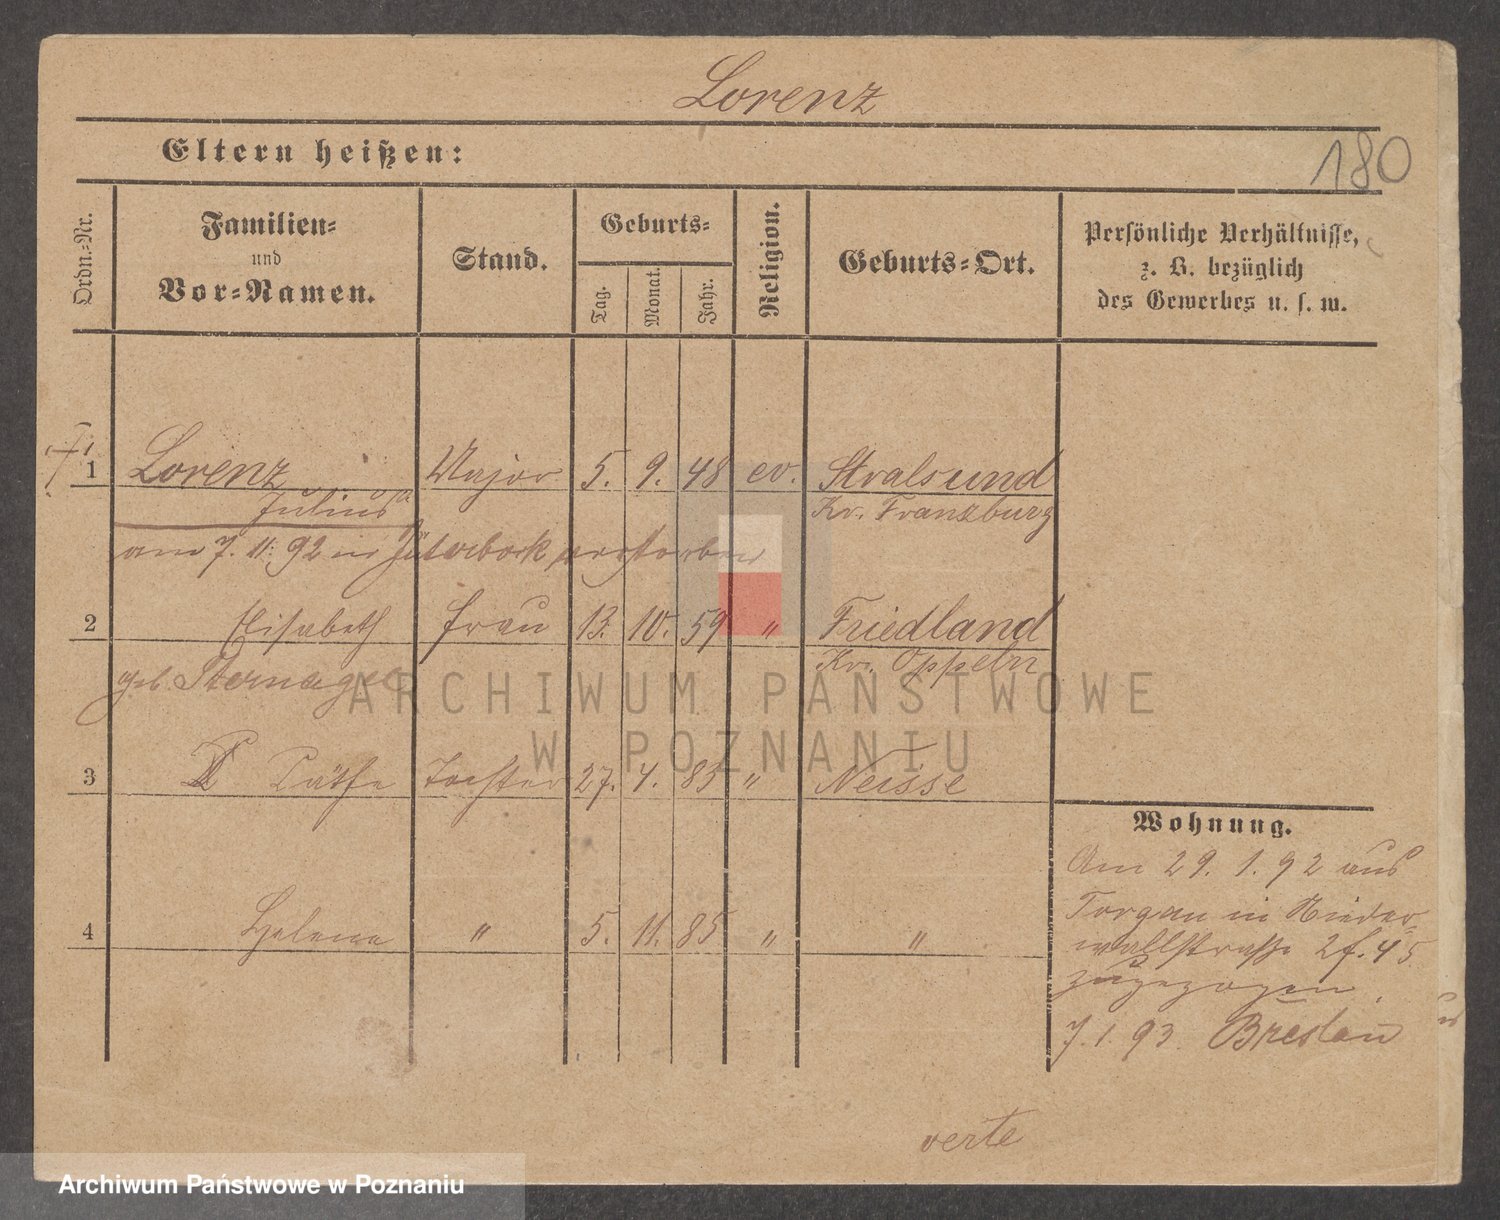 Lorenz
Eltern heißen:
180
Ordn.-Nr.
Familien-
und
Vor-Namen.
Stand.
Geburts-
Tag.
Monat.
Jahr.
Religion.
Geburts-Ort.
Persönliche Verhältnisse,
z. B. bezüglich
des Gewerbes u. s. w.
† 1 Lorenz Major 5. 9. 48 ev. Stralsund
Julius Kr. Franzburg
am 7. 11. 92 in Jüterbock verstorben
2 Elisabeth Frau 13. 10. 59 " Friedland
geb. Sternagel Kr. Oppeln
3 Käthe Tochter 27. 4. 83 " Neisse
4 Helene " 5. 11. 85 " "
Wohnung.
Am 29. 1. 92 aus
Torgau in Nieder-
wallstraße 2 f. 45
zugezogen.
7. 1. 93. Breslau
verte
ARCHIWUM PAŃSTWOWE
W POZNANIU
Archiwum Państwowe w Poznaniu